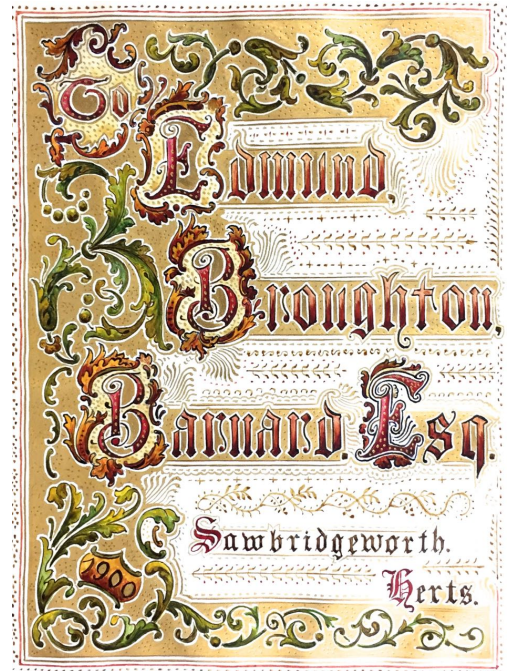 To
Edmund,
Broughton,
Barnard. Esq.
Sawbridgeworth.
Herts.
1900